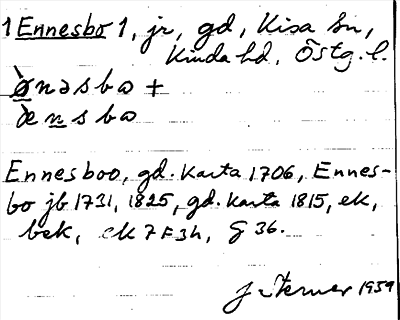 1 Ennesbo 1, jr, gd, Kisa sn,
Kinda hd, Östg. l.
ø̀nəsbɷ +
æ̀nsbɷ
Ennesboo, gd. karta 1706, Ennes-
bo jb 1731, 1825, gd. karta 1815, ek,
bek, ek 7F3h, G 36.
J. Sterner 1959